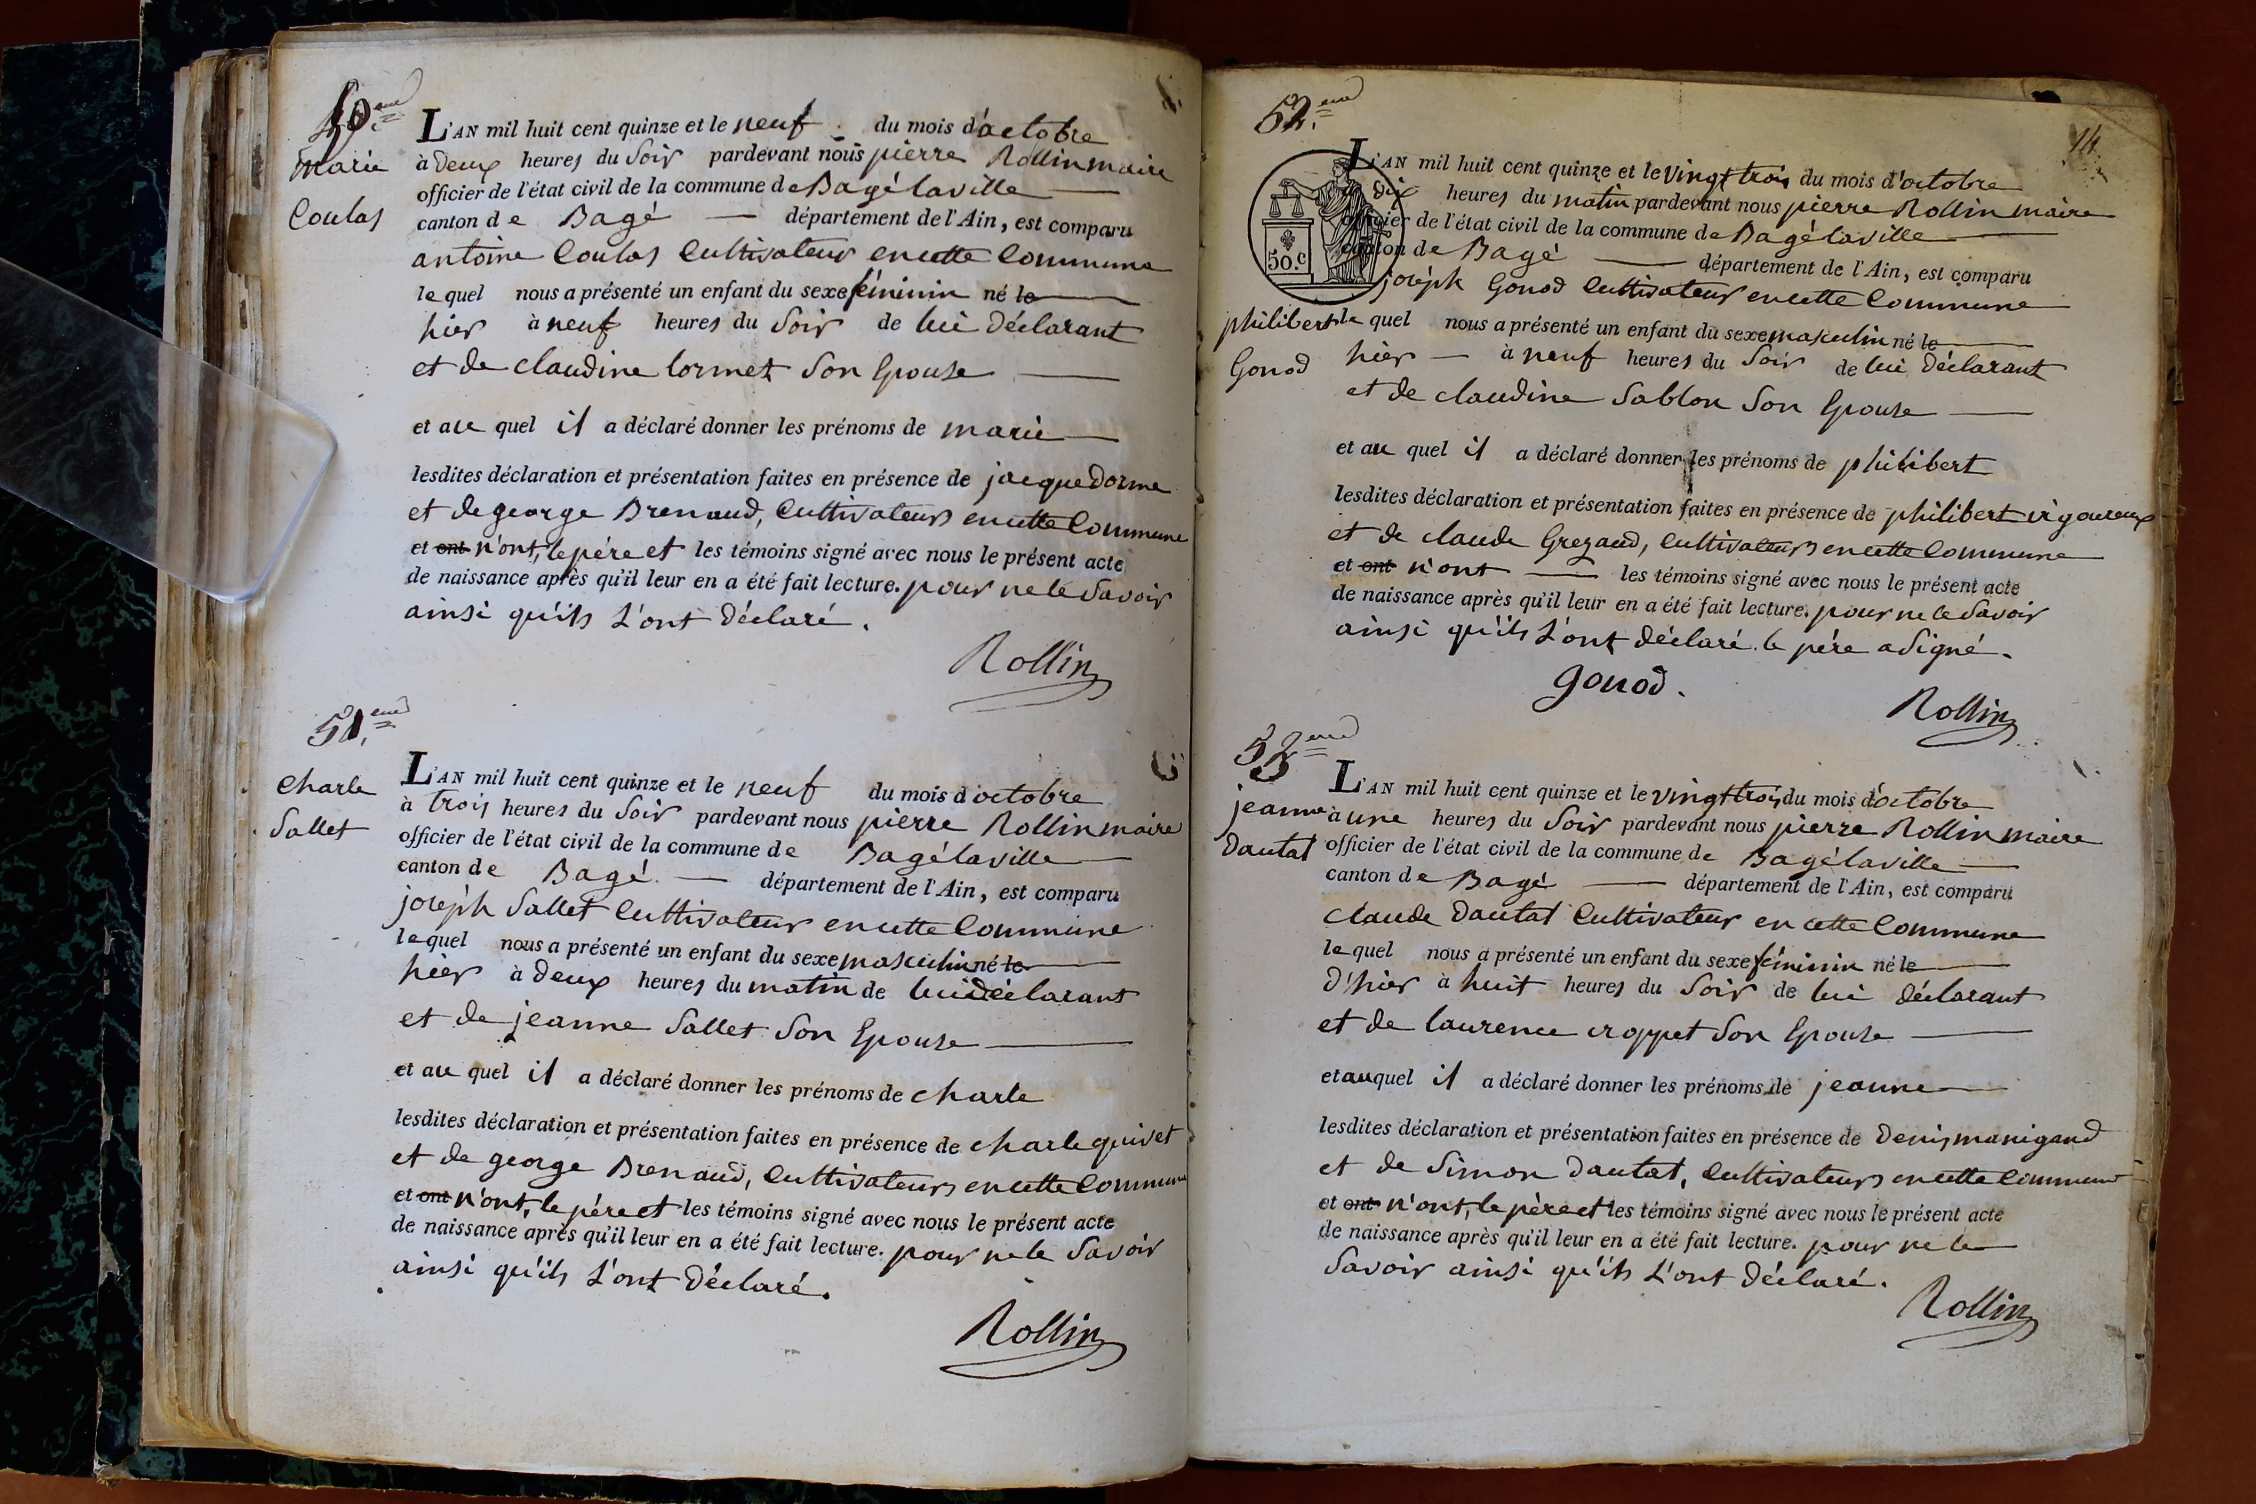 50.eme
Marie
Coulas
L'AN mil huit cent quinze et le neuf du mois d'octobre
à deux heures du Soir pardevant nous pierre Rollin maire
officier de l'état civil de la commune de Bagé laville
canton de Bagé département de l'Ain, est comparu
antoine Coulas Cultivateur en cette Commune
le quel nous a présenté un enfant du sexe féminin né le
hier à neuf heures du Soir de lui déclarant
et de claudine lormet Son Epouse
et au quel il a déclaré donner les prénoms de marie
lesdites déclaration et présentation faites en présence de jacque dorme
et de george Brenaud, Cultivateurs en cette Commune
et ont n'ont, le père et les témoins signé avec nous le présent acte
de naissance après qu'il leur en a été fait lecture. pour ne le Savoir
ainsi qu'ils L'ont déclaré.
Rollin
51.eme
Charle
Sallet
L'AN mil huit cent quinze et le neuf du mois d'octobre
à trois heures du Soir pardevant nous pierre Rollin maire
officier de l'état civil de la commune de Bagé laville
canton de Bagé département de l'Ain, est comparu
joséph Sallet Cultivateur en cette Commune
le quel nous a présenté un enfant du sexe masculin né le
hier à deux heures du matin de lui déclarant
et de jeanne Sallet Son Epouse
et au quel il a déclaré donner les prénoms de charle
lesdites déclaration et présentation faites en présence de charle quivet
et de george Brenaud, Cultivateurs en cette Commune
et ont n'ont, le père et les témoins signé avec nous le présent acte
de naissance après qu'il leur en a été fait lecture. pour ne le Savoir
ainsi qu'ils L'ont déclaré.
Rollin
14
52.eme
50.c
philibert
Gonod
L'AN mil huit cent quinze et le vingt trois du mois d'octobre
dix heures du matin pardevant nous pierre Rollin maire
officier de l'état civil de la commune de Bagé laville
canton de Bagé département de l'Ain, est comparu
joséph Gonod Cultivateur en cette Commune
le quel nous a présenté un enfant du sexe masculin né le
hier à neuf heures du Soir de lui déclarant
et de claudine Sablon Son Epouse
et au quel il a déclaré donner les prénoms de philibert
lesdites déclaration et présentation faites en présence de philibert vigoureux
et de claude Gregaud, Cultivateurs en cette Commune
et ont n'ont les témoins signé avec nous le présent acte
de naissance après qu'il leur en a été fait lecture. pour ne le Savoir
ainsi qu'ils L'ont déclaré. le père a Signé.
gonod.
Rollin
53.eme
jeanne
dautat
L'AN mil huit cent quinze et le vingt trois du mois d'octobre
à une heures du Soir pardevant nous pierre Rollin maire
officier de l'état civil de la commune de Bagé laville
canton de Bagé département de l'Ain, est comparu
claude dautat Cultivateur en cette Commune
le quel nous a présenté un enfant du sexe féminin né le
d'hier à huit heures du Soir de lui déclarant
et de laurence croppet Son Epouse
et au quel il a déclaré donner les prénoms de jeanne
lesdites déclaration et présentation faites en présence de denis manigand
et de Simon dautat, Cultivateurs en cette Commune
et ont n'ont, le père et les témoins signé avec nous le présent acte
de naissance après qu'il leur en a été fait lecture. pour ne le
Savoir ainsi qu'ils L'ont déclaré.
Rollin